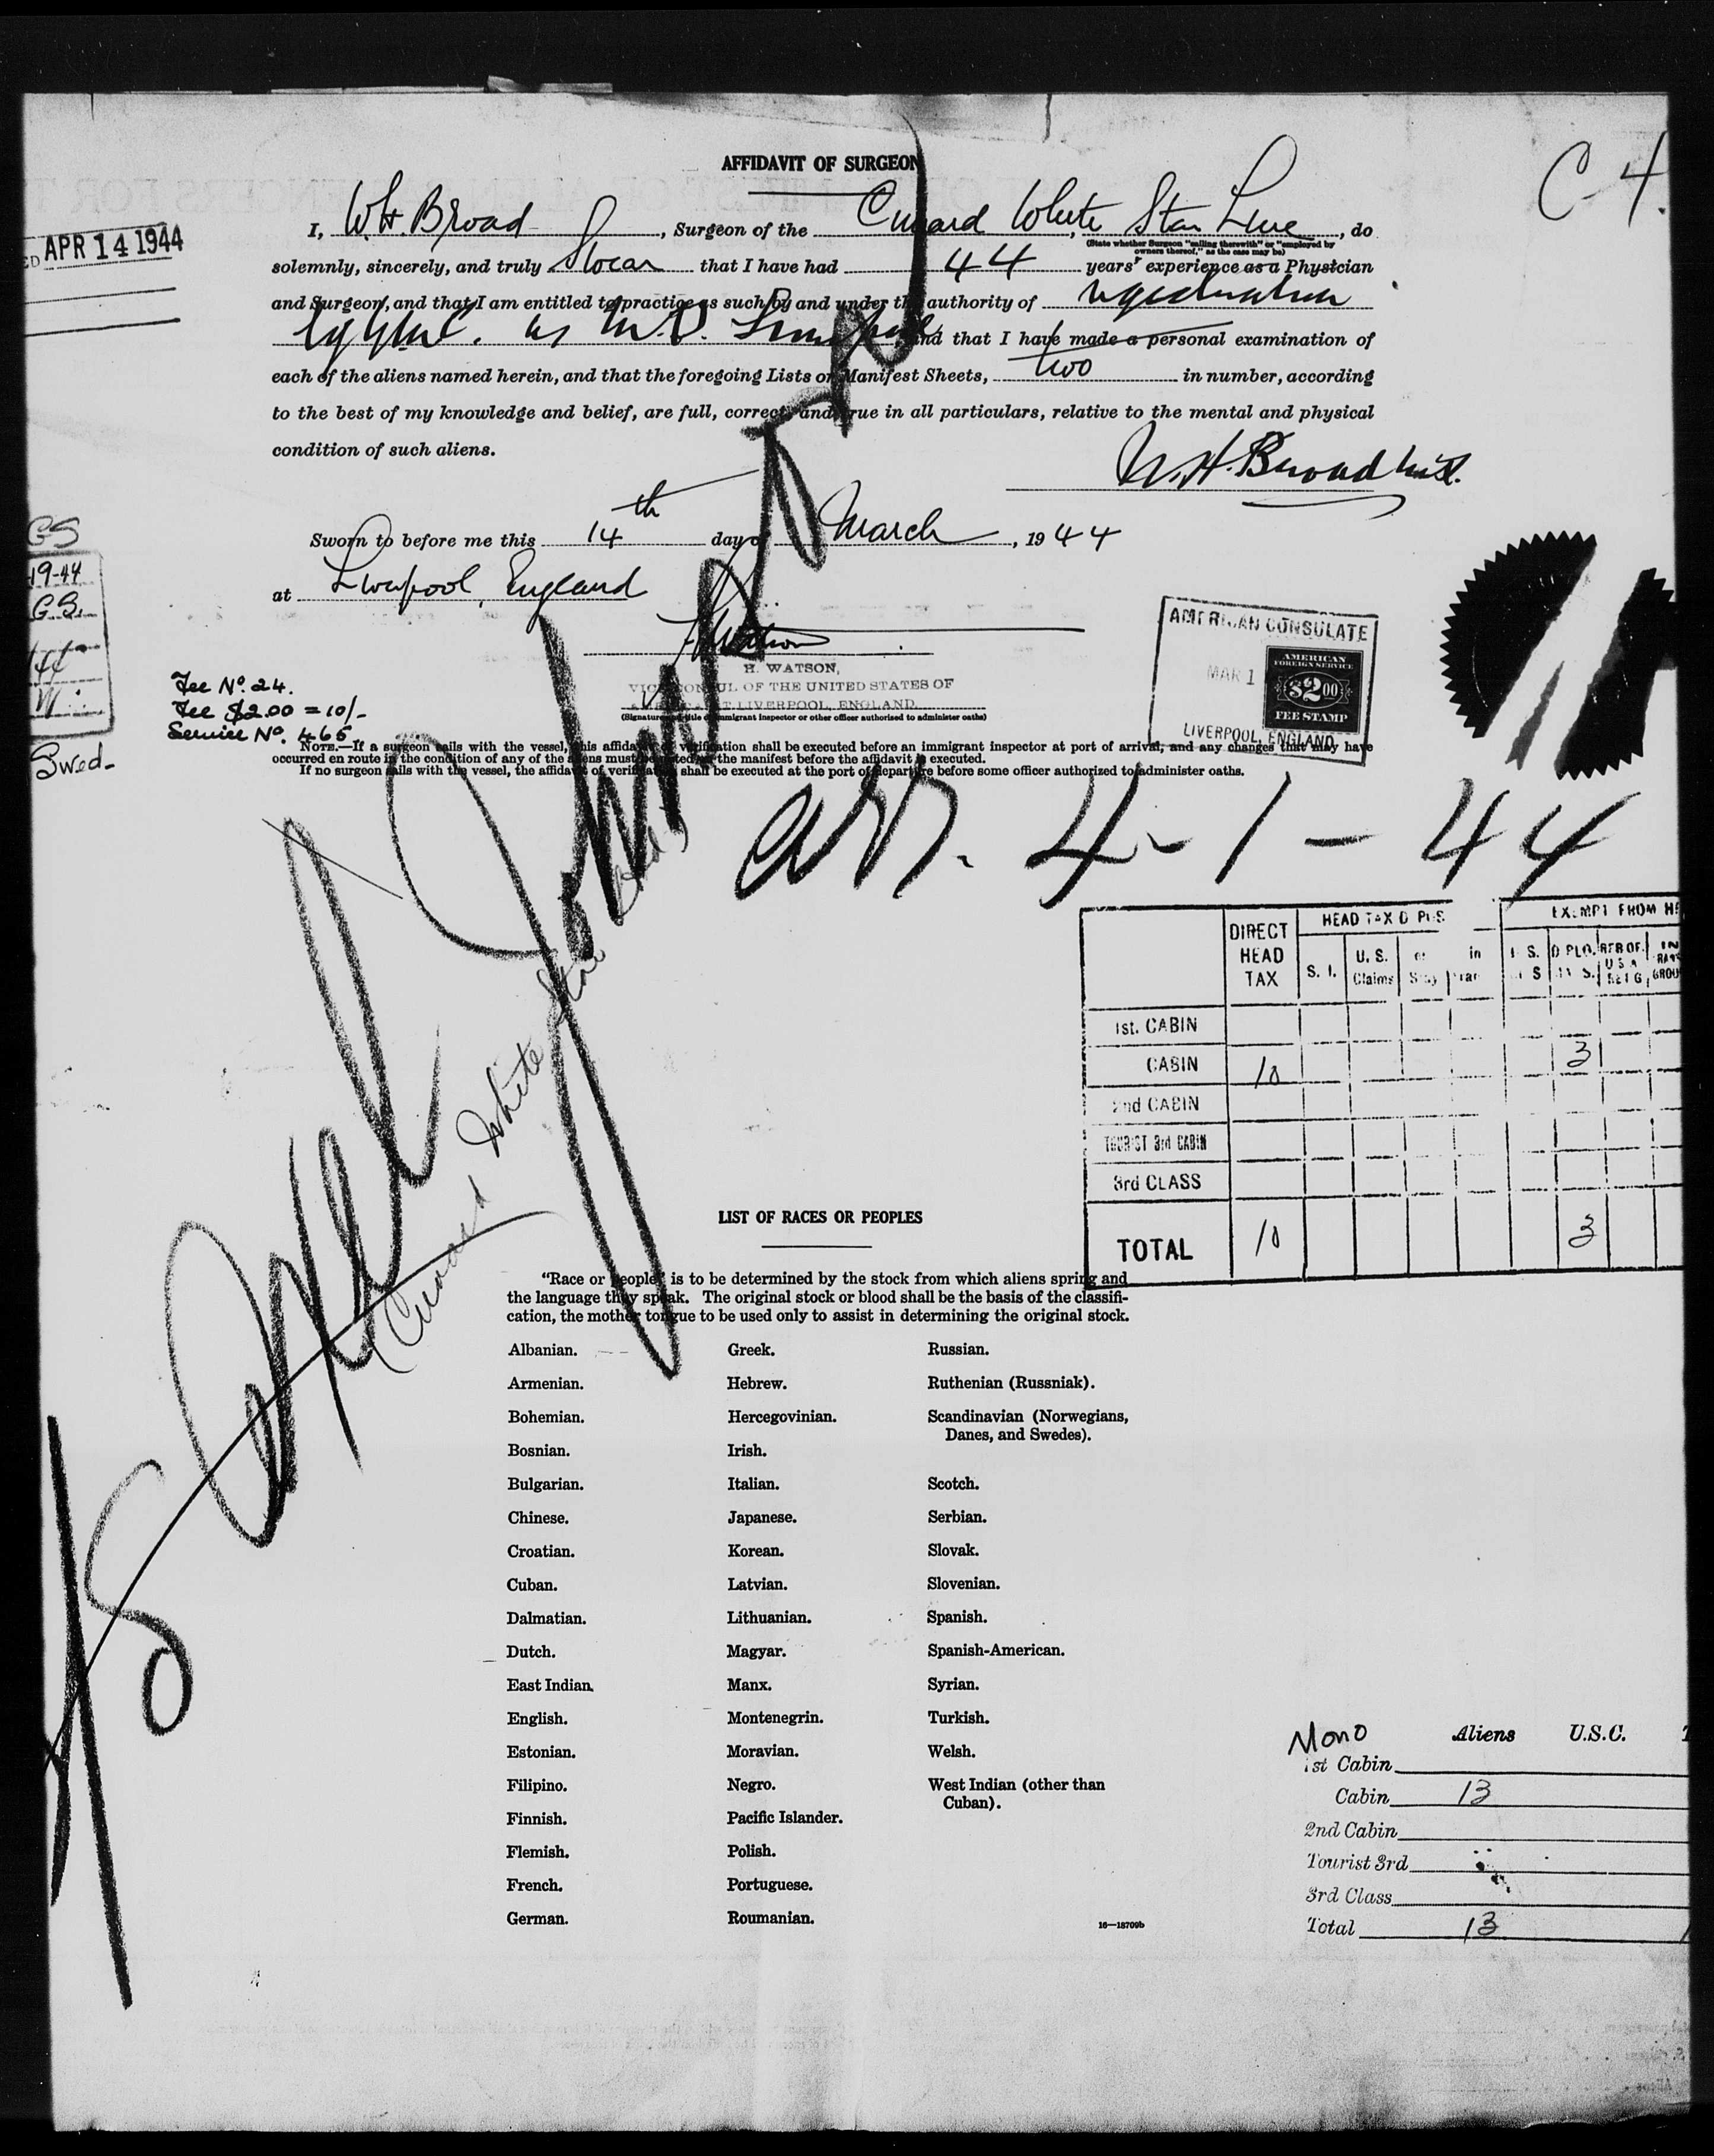 AFFIDAVIT OF SURGEON
C-4.
APR 14 1944
I, W.H. Broad, Surgeon of the Cunard White Star Line, do
(State whether Surgeon "sailing therewith" or "employed by
owners thereof," as the case may be)
solemnly, sincerely, and truly Swear that I have had 44 years' experience as a Physician
and Surgeon, and that I am entitled to practice as such by and under the authority of registration
as M.D. and that I have made a personal examination of
each of the aliens named herein, and that the foregoing Lists or Manifest Sheets, two in number, according
to the best of my knowledge and belief, are full, correct, and true in all particulars, relative to the mental and physical
condition of such aliens.
W.H. Broadhurst.
Sworn to before me this 14th day of March, 1944
at Liverpool, England
H. Watson
H. WATSON,
VICE CONSUL OF THE UNITED STATES OF
AT LIVERPOOL, ENGLAND
(Signature and title of immigrant inspector or other officer authorized to administer oaths)
GS
19-44
G.S.
44
Swed-
AMERICAN CONSULATE
MAR 1
AMERICAN
FOREIGN SERVICE
$2.00
FEE STAMP
LIVERPOOL, ENGLAND
Fee No. 24.
Fee $2.00 = 10/-
Service No. 465
NOTE.—If a surgeon sails with the vessel, this affidavit of verification shall be executed before an immigrant inspector at port of arrival, and any changes that may have
occurred en route in the condition of any of the aliens must be noted on the manifest before the affidavit is executed.
If no surgeon sails with the vessel, the affidavit of verification shall be executed at the port of departure before some officer authorized to administer oaths.
arr. 4-1-44
SS Axel Johnson
(Cunard White Star
DIRECT HEAD TAX
HEAD TAX DEPOS
EXEMPT FROM HE
S. I.
U. S. Claims
1st. CABIN
CABIN 10 3
2nd CABIN
TOURIST 3rd CABIN
3rd CLASS
TOTAL 10 3
LIST OF RACES OR PEOPLES
"Race or people" is to be determined by the stock from which aliens spring and
the language they speak. The original stock or blood shall be the basis of the classifi-
cation, the mother tongue to be used only to assist in determining the original stock.
Albanian. Greek. Russian.
Armenian. Hebrew. Ruthenian (Russniak).
Bohemian. Hercegovinian. Scandinavian (Norwegians,
Danes, and Swedes).
Bosnian. Irish.
Bulgarian. Italian. Scotch.
Chinese. Japanese. Serbian.
Croatian. Korean. Slovak.
Cuban. Latvian. Slovenian.
Dalmatian. Lithuanian. Spanish.
Dutch. Magyar. Spanish-American.
East Indian. Manx. Syrian.
English. Montenegrin. Turkish.
Estonian. Moravian. Welsh.
Filipino. Negro. West Indian (other than
Cuban).
Finnish. Pacific Islander.
Flemish. Polish.
French. Portuguese.
German. Roumanian.
16—18709b
Mono Aliens U.S.C.
1st Cabin
Cabin 13
2nd Cabin
Tourist 3rd
3rd Class
Total 13